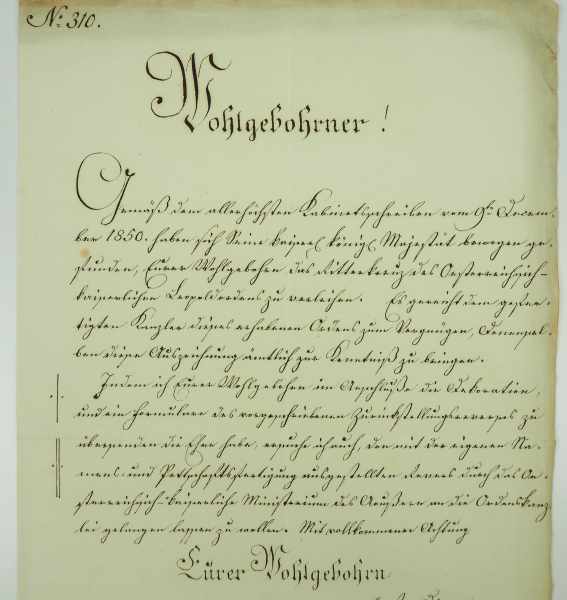 No 310.
Wohlgebohrner!
Gemäß dem allerhöchsten Kabinetsschreiben vom 9ten Decem-
ber 1850. haben sich Seine kaiserl. königl. Majestät bewogen ge-
funden, Eurer Wohlgebohrn das Ritterkreuz des Oesterreichisch-
kaiserlichen Leopoldordens zu verleihen. Es gereicht dem gefer-
tigten Kanzler dieses erhabenen Ordens zum Vergnügen, Denensel-
ben diese Auszeichnung ämtlich zur Kenntniß zu bringen.
Indem ich Eurer Wohlgebohrn im Anschluße die Dekoration,
und ein Formulare des vorgeschriebenen Zurückstellungsreverses zu
übersenden die Ehre habe, ersuche ich auch, den mit der eigenen Na-
mens- und Pettschaftsfertigung ausgestellten Revers durch das Oe-
sterreichisch-kaiserliche Ministerium des Aeußern an die Ordenskanz-
lei gelangen lassen zu wollen. Mit vollkommener Achtung
Eurer Wohlgebohrn